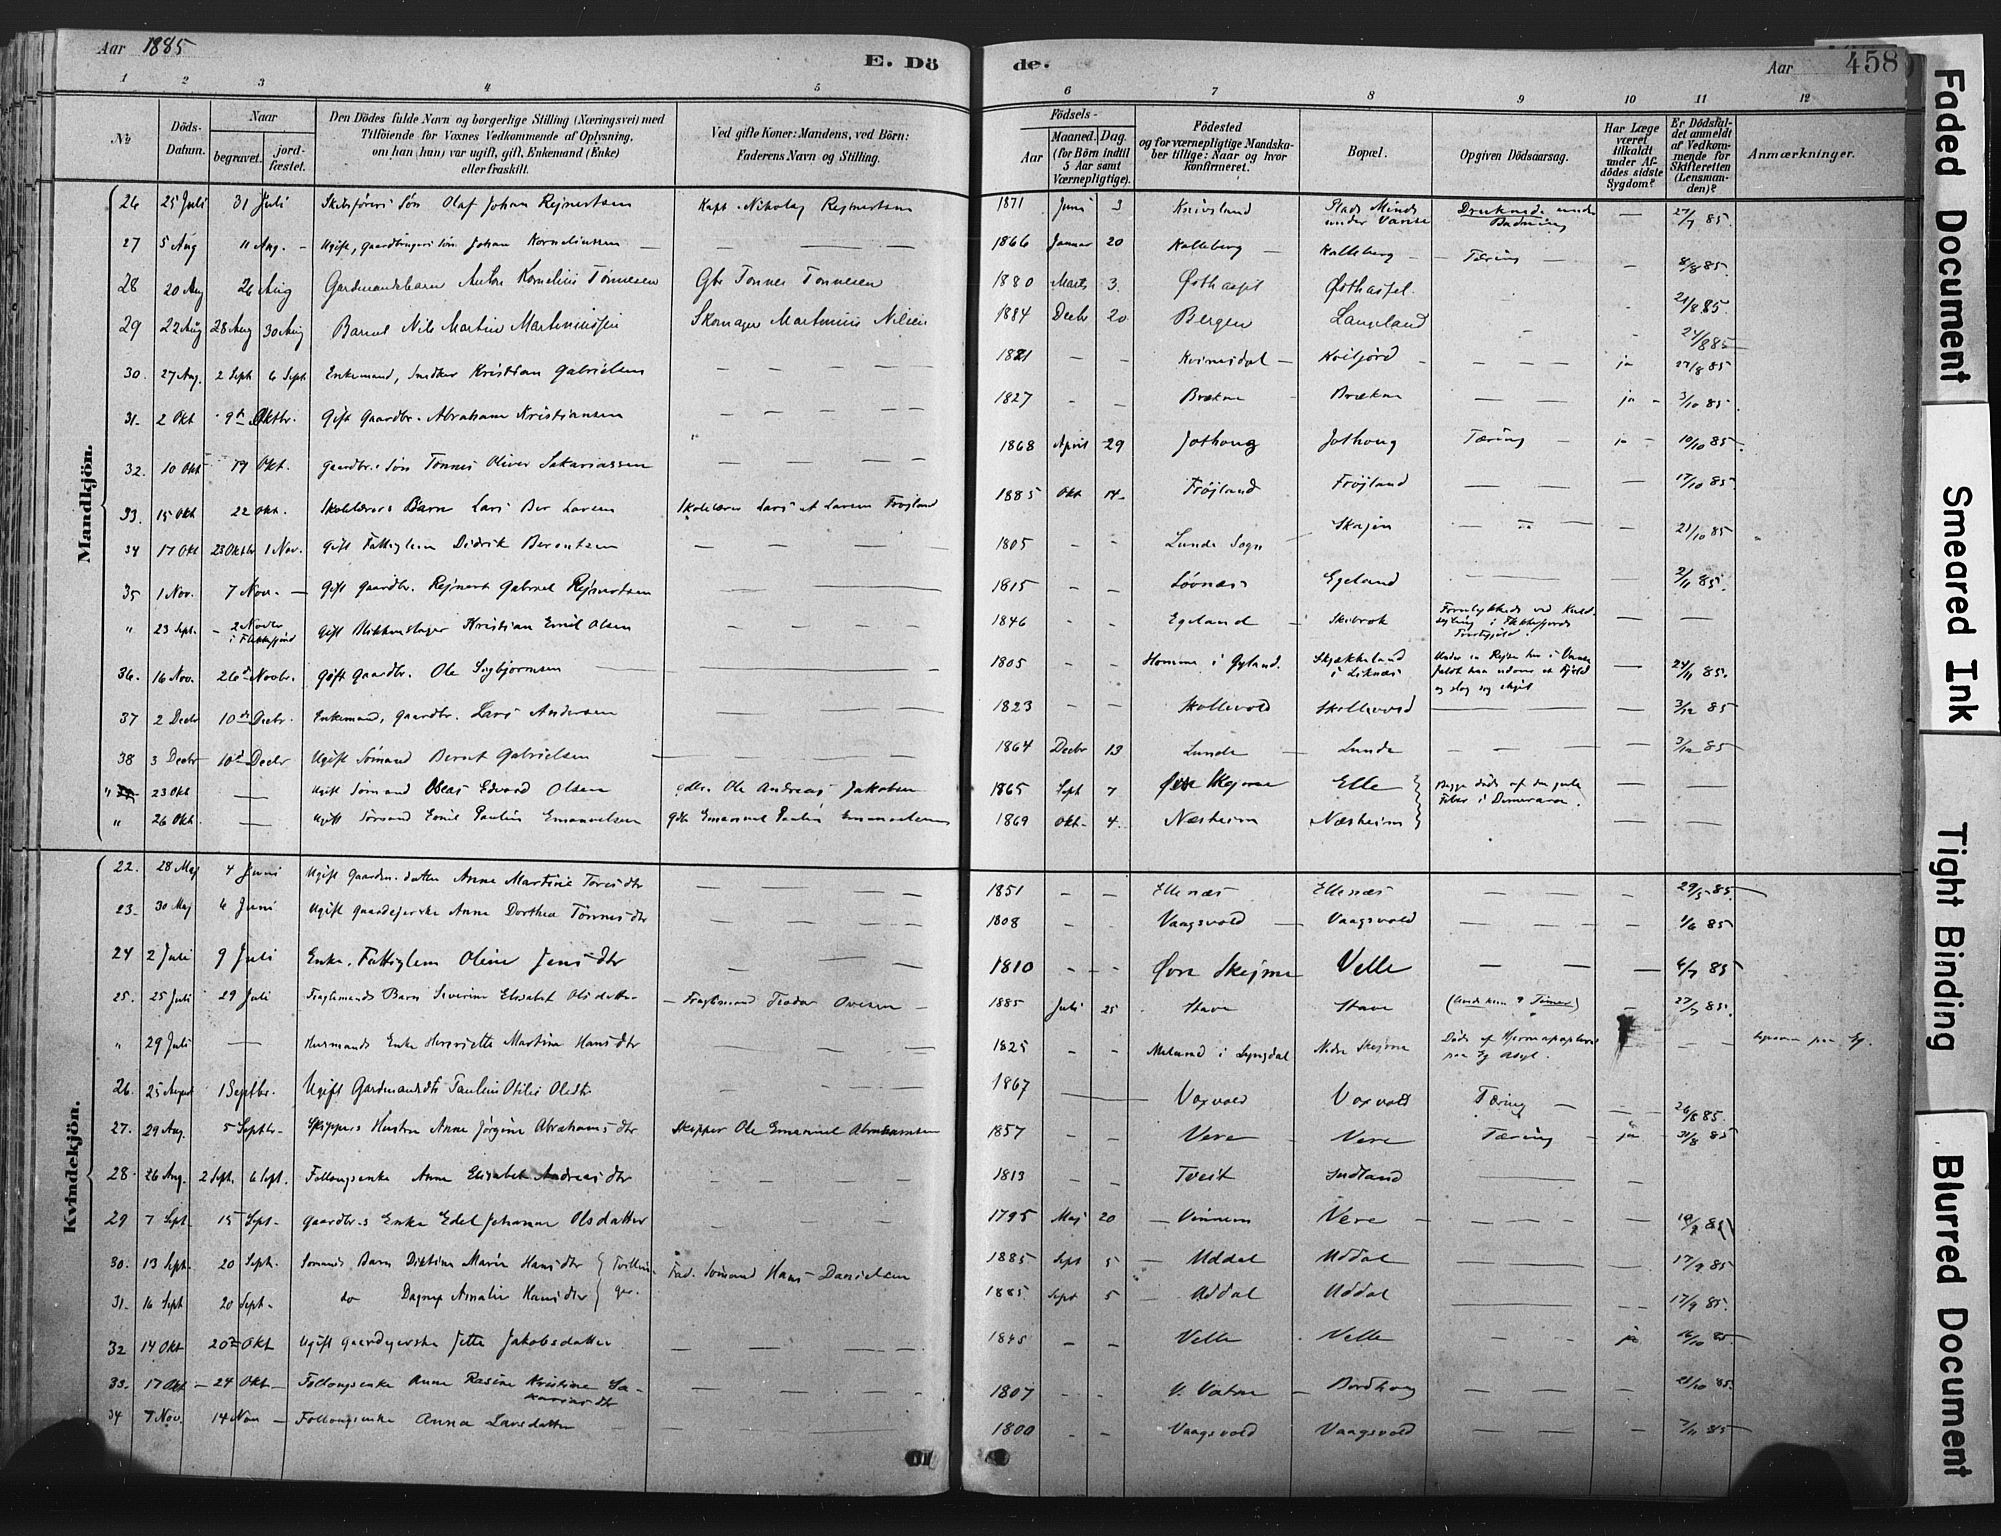 Aar 1885
E. Dö
de.
Aar
458
1 2 3 4 5 6 7 8 9 10 11 12
№
Döds-Datum.
Naar
begravet.
jord-fæstet.
Den Dödes fulde Navn og borgerlige Stilling (Næringsvei) med
Tilföiende for Voxnes Vedkommende af Oplysning,
om han (hun) var ugift, gift, Enkemand (Enke)
eller fraskilt.
Ved gifte Koner: Mandens, ved Börn:
Faderens Navn og Stilling.
Födsels-
Aar
Maaned. Dag.
(for Börn indtil
5 Aar samt
Værnepligtige).
Födested
og for værnepligtige Mandska-
ber tillige: Naar og hvor
konfirmeret.
Bopæl.
Opgiven Dödsaarsag.
Har Læge
været
tilkaldt
under Af-
dödes sidste
Sygdom?
Er Dödsfal-
det anmeldt
af Vedkom-
mende for
Skifteretten
(Lensman-
den)?
Anmærkninger.
Mandkjön.
26 25 Juli 31 Juli Skibsförers Sön Olaf Johan Rejnertsen Kapt. Nikolay Rejnertsen 1871 Juni 3 Knivsland Druknede under Badning — 27/7 85
27 5 Aug 11 Aug. Ugift, gaardbrugers sön Johan Korneliussen 1866 Januar 20 Kalleberg Kalleberg Tæring 8/8 85.
28 20 Aug 26 Aug Gardmandsbarn Anton Kornelius Tönnesen Gbr Tönnes Tönnesen 1880 Marts 3 Östhassel Östhassel 21/8 85.
29 22 Aug 28 Aug 30 Aug Barnet Nils Martin Martiniussen Skomager Martinius Nilsen 1884 Decbr 20 Bergen Langeland 24/8 85
30. 27 Aug. 2 Sept 6 Sept Enkemand, Snedker Kristian Gabrielsen 1821 Kvinesdal ja 27/8 85
31. 2 Okt 9de Oktbr. Gift Gaardbr. Abraham Kristiansen 1827 Brækne Brækne ja 3/10 85
32. 10 Okt 19 Okt. Gaardbr.s Sön Tönnes Oliver Sakariassen 1868 April 29 Jothoug Jothoug Tæring ja 10/10 85.
33. 15 Okt 22 Okt. Skolelærers Barn Lars Ber Larsen Skolelærer Lars Larsen Fröjland 1885 Okt 14 Fröjland Fröjland 17/10 85
34 17 Okt 23 Oktbr 1 Nov. Gift Fattiglem Didrik Berentsen 1805 Lunde Sogn 21/10 85
35 1 Nov. 7 Nov. Gift Gaardbr. Rejnert Gabriel Rejnertsen 1815 Lövnæs Egeland 2/11 85.
" 23 Sept. 2 Novbr i Flekkefjord Gift Blikkenslager Kristian Emil Olsen 1846 Egeland Skibrok Forulykkede ved i Flekkefjords
36. 16 Nov. 26de Novbr. Gift Gaardbr. Ole Sigbjörnsen 1805 Homme i Gyland. i Liknæs og slog sig ihjel 24/11 85.
37 2 Decbr 10de Decbr. Enkemand, Gaardbr. Lars Andersen 1823 Skollevold Skollevold 3/12 85
38 3 Decbr 10de Decbr Ugift Sömand Bernt Gabrielsen 1864 Decbr 13 Lunde Lunde 3/12 85
" 23 Okt Ugift Sömand Edvard Olsen gdbr. Ole Andreas Jakobsen 1865 Sept 7 Elle Begge döde af den gule Feber i Demerara.
" 26 Okt. Ugift Sömand Emil Paulin Emanuelsen gdb Emanuel Paulin Emanuelsen 1869 Okt. 4 Næsheim Næsheim
Kvindekjön.
22. 28 Maj 4 Juni Ugift Gaardm. datter Anne Martine Toresdtr 1851 Ellenæs Ellenæs 29/5 85.
23. 30 Maj 6 Juni Ugift Gaardejerske Anna Dorthea Tönnesdtr 1808 Vaagsvold Vaagsvold 1/6 85
24 2 Juli 9 Juli Enke. Fattiglem Oline Jensdtr 1810 Övre Skejme Velle 6/7 85
25. 25 Juli 29 Juli Barn Severine Elisabet Olsdatter Teodor Ovesen 1885 Juli 25 Stave Stave 27/7 85.
" 29 Juli Husmands Enke Henriette Martine Hansdtr 1825 i Lyngdal Nedre Skejme Döde af
26. 25 August 1 Septbr. Ugift Gardmandsdtr Pauline Otilie Olsdtr 1867 Voxvold Voxvold Tæring 26/8 85.
27. 29 Aug. 5 Septbr. Skippers Hustru Anne Jörgine Abrahamsdtr Skipper Ole Emanuel Abrahamsen 1857 Vere Vere Tæring ja 31/8 85
28. 26 Aug. 2 Sept. 6 Sept. Follougsenke Anne Elisabet Andreasdtr 1813 Tveit Indland
29 7 Sept. 15 Sept. Gaardbr.s Enke Edel Johanne Olsdatter 1795 Maj 20 Vinnem Vere
30. 13 Sept. 20 Sept. Sömands Barn Diktine Marie Hansdtr Tvillin- Fad. Sömand Hans Danielsen 1885 Sept 5 Uddal Uddal 17/9 85
31. 16 Sept 20 Sept. do Dagny Amalie Hansdtr ger. 1885. Sept 5 Uddal Uddal 17/9 85.
32 14 Okt 20de Okt Ugift Gaardejerske Jette Jakobsdatter 1845 Velle Velle ja 16/10 85
33. 17 Okt 24 Okt Follougsenke Anne Rasine Kristine Sa-
kariasdtr 1807 V. Vatne 21/10 85
34 7 Nov. 14 Nov Follougsenke Anna Larsdatter 1800 Vaagsvold Vaagsvold 7/11 85
Faded Document
Smeared Ink
Tight Binding
Blurred Document